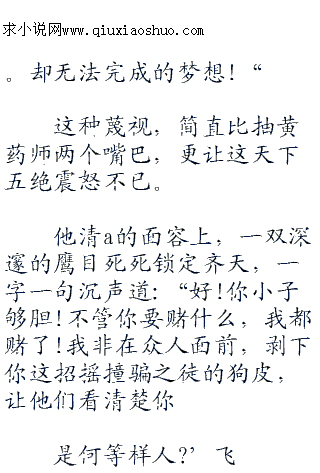 求小说网www.qiuxiaoshuo.com
。却无法完成的梦想！“
这种蔑视，简直比抽黄
药师两个嘴巴，更让这天下
五绝震怒不已。
他清a的面容上，一双深
邃的鹰目死死锁定齐天，一
字一句沉声道：“好！你小子
够胆！不管你要赌什么，我都
赌了！我非在众人面前，剥下
你这招摇撞骗之徒的狗皮，
让他们看清楚你
是何等样人？’飞